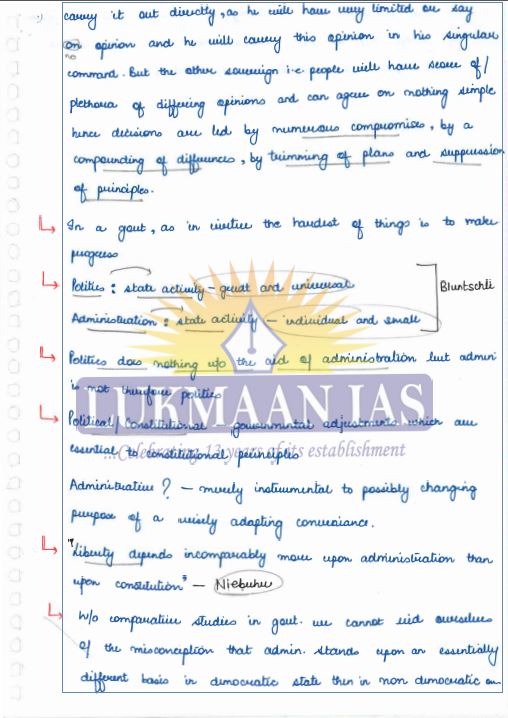 carry it out directly, as he will have very limited or say
no
on opinion and he will carry this opinion in his singular
command. But the other sovereign i.e. people will have score of/
plethora of differing opinions and can agree on nothing simple
hence decisions are led by numerous compromises, by a
compounding of differences, by trimming of plans and suppression
of principles.
In a govt, as in virtue the hardest of things is to make
progress
Politics : state activity - great and universal
Bluntschli
Administration : state activity - individual and small
Politics does nothing w/o the aid of administration but admin
is not therefore politics
LUKMAAN IAS
Political/Constitutional - governmental adjustments which are
...Celebrating 13 years of its establishment
essential to constitutional principles
Administrative ? - merely instrumental to possibly changing
purpose of a wisely adapting convenience.
"Liberty depends incomparably more upon administration than
upon constitution" - Niebuhr
W/o comparative studies in govt. we cannot rid ourselves
of the misconception that admin. stands upon an essentially
different basis in democratic state then in non democratic on